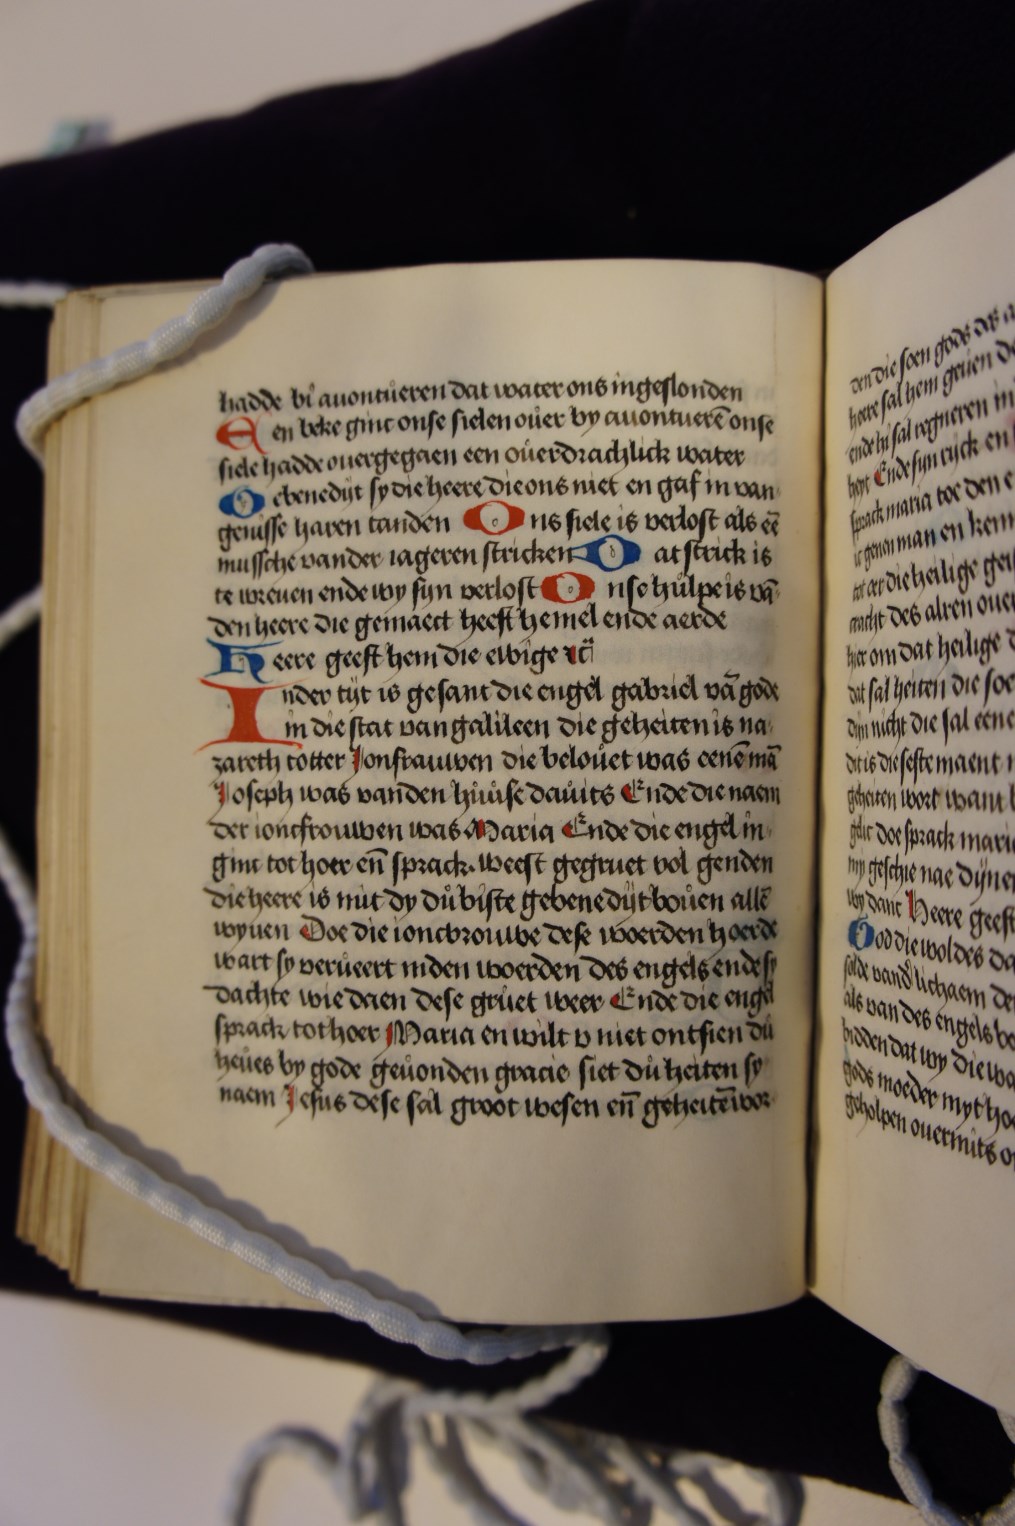 hadde bi auontůeren dat water ons ingeslonden
Een beke ginc onse sielen oůer by auontuerē onse
siele hadde ouergegaen een oůerdrachlick water
Gebenedijt sy die heere die ons niet en gaf in van
genisse haren tanden Ons siele is verlost als eē
mussche vander iageren stricken Dat strick is
te wreuen ende wy sijn verlost Onse hůlpe is vā
den heere die gemaect heeft hemel ende aerde
Heere geeft hem die ewige rc
Inder tijt is gesant die engel gabriel vā gode
in die stat van galileen die geheiten is na
zareth totter Jonfrauwen die beloůet was eenē mā
Joseph was vanden hůůse dauits Ende die naem
der ioncfrouwen was Maria Ende die engel in
ginc tot hoer en̄ sprack weest gegruet vol genden
die heere is mit dy dů biste gebenedijt boůen allē
wyuen Doe die ioncvrouwe dese woerden hoerde
wart sy verůeert inden woerden des engels ende sy
dachte wie daen dese grůet weer Ende die engel
sprack tot hoer Maria en wilt v niet ontsien dů
heůes by gode geůonden gracie siet dů heiten sy
naem Jesus dese sal groot wesen en̄ geheitē wor
den die soen gods
heere sal hem geuen
ende hi sal regneren in
heyt Ende sijn rijck en
sprack maria toe den e
ic genen man en kem
die heilige gei
cracht des alren ouer
hier om dat heilige
dat sal heiten die soe
dijn nicht die sal eene
dit is die seste maent
geheiten wort want
doe sprack mari
my geschie nae dijne
wy danc Heere geeft
God die woldes da
solde vand lichaem de
als van des engels bo
bidden dat wy die wa
gods moeder myt ho
geholpen ouermits o